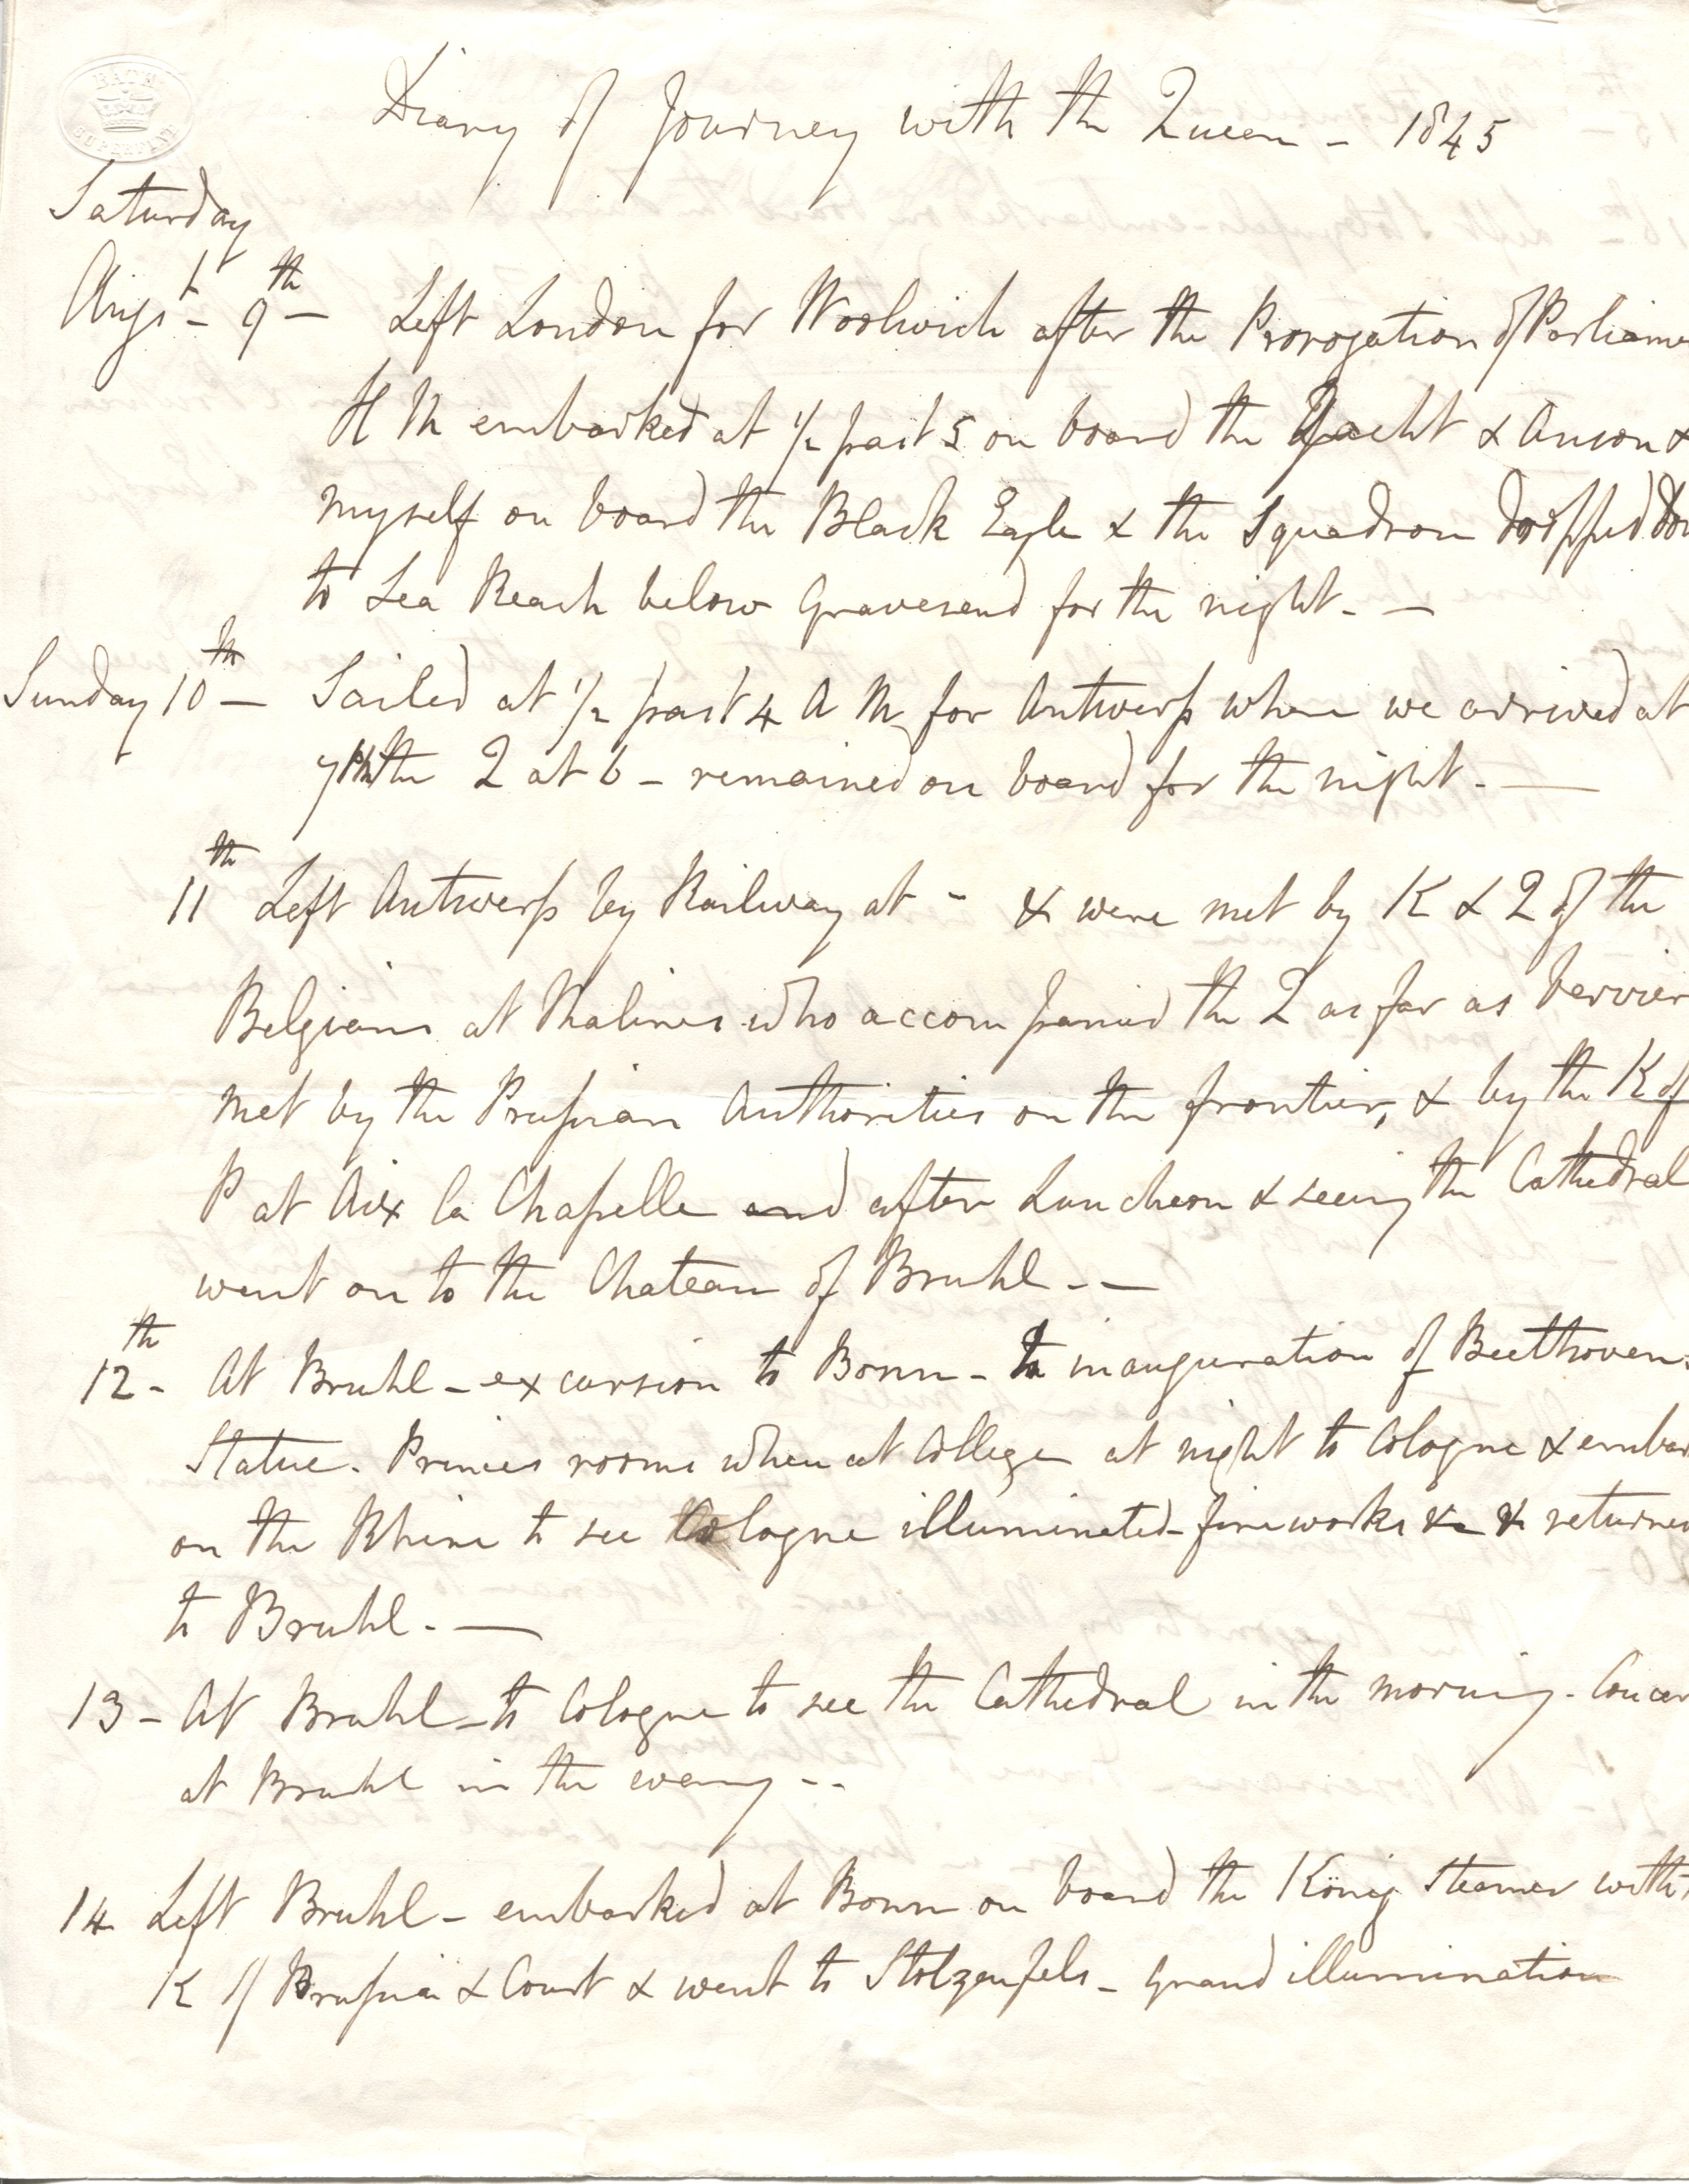 BATH
SUPERFINE
Diary of Journey with the Queen - 1845
Saturday
Augst - 9th - Left London for Woolwich after the Prorogation of Parliame
H M embarked at 1/2 past 5 on board the Yacht & Anson &
myself on board the Black Eagle & the Squadron dropped dow
to Sea Reach below Gravesend for the night. -
Sunday 10th - Sailed at 1/2 past 4 A M for Antwerp where we arrived at
7 PM the Q at 6 - remained on board for the night. -
11th Left Antwerp by Railway at - & were met by K & Q of the
Belgians at Malines who accompanied the Q as far as Vervier
met by the Prussian Authorities on the frontier, & by the K of
P at Aix la Chapelle and after Luncheon & seeing the Cathedral
went on to the Chateau of Bruhl - -
12th - At Bruhl - excursion to Bonn - to inauguration of Beethovens
Statue. Princes rooms when at College at night to Cologne & embar
on the Rhine to see Cologne illuminated - fireworks &c & returned
to Bruhl. -
13 - At Bruhl - to Cologne to see the Cathedral in the morning. Concer
at Bruhl in the evening - -
14 Left Bruhl - embarked at Bonn on board the König Steamer with
K of Prussia & Court & went to Stolzenfels - Grand illumination